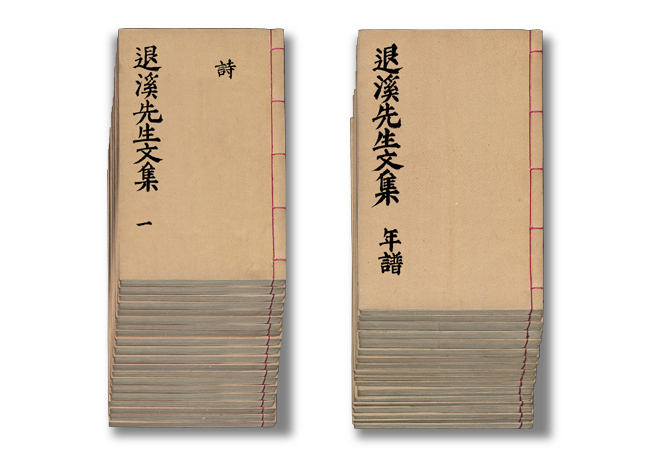 退溪先生文集 一
詩
退溪先生文集 年譜